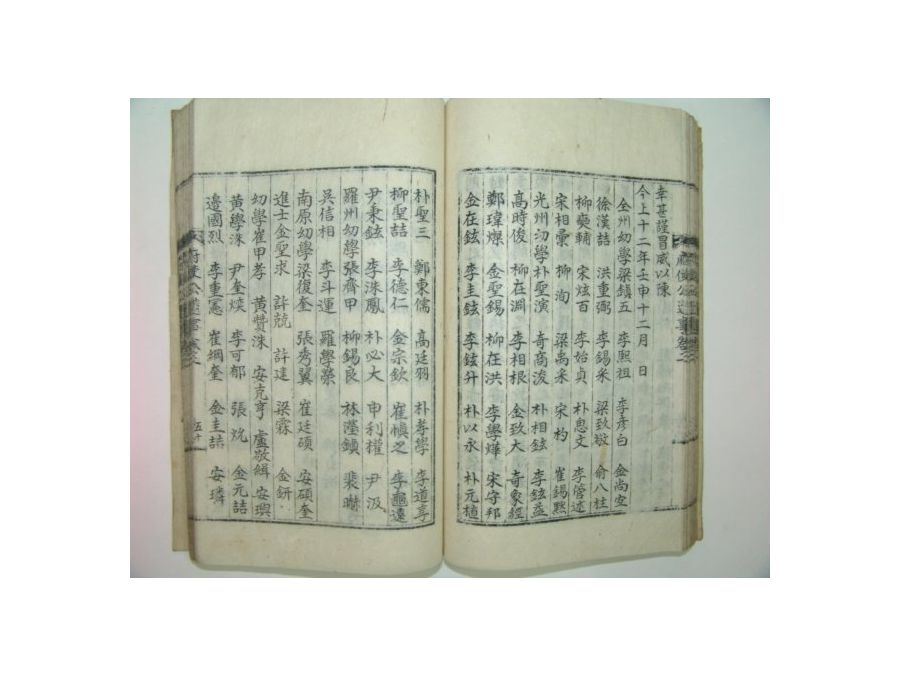 幸甚謹冒威以陳
今上十二年壬申十二月 日
全州幼學梁鎮五 李熙祖 李彦白 金尚
徐漢喆 洪重弼 李錫采 梁致敬 俞八柱
柳奭輔 宋炫百 李始貞 朴思文 李管述
宋相彙 柳洵 梁禹采 宋杓 崔錫熙
光州幼學朴聖演 奇商浚 朴相鉉 李鉉益
高時俊 柳在淵 李相根 金致大 奇象經
鄭瑋燦 金聖錫 柳在洪 李學燁 宋守邦
金在鉉 李圭鉉 李鉉升 朴以永 朴元植
朴聖三 鄭東儒 高廷羽 朴孝學 李道亨
柳聖喆 李德仁 金宗欽 崔愼之 李龜遠
尹秉鉉 李洙鳳 朴必大 申利權 尹汲
羅州幼學張齊甲 柳錫良 林瀅鎮 裴
吳信相 李斗運 羅學榮
南原幼學梁復奎 張秀翼 崔廷碩 安碩奎
進士金聖求 許兢 許建 梁霖 金鈃
幼學崔甲孝 黃贊洙 安克亨 盧敬緝 安璵
黃學洙 尹奎煐 李可郁 張 金元喆
邊國烈 李重憲 崔綱奎 金圭喆 安璘